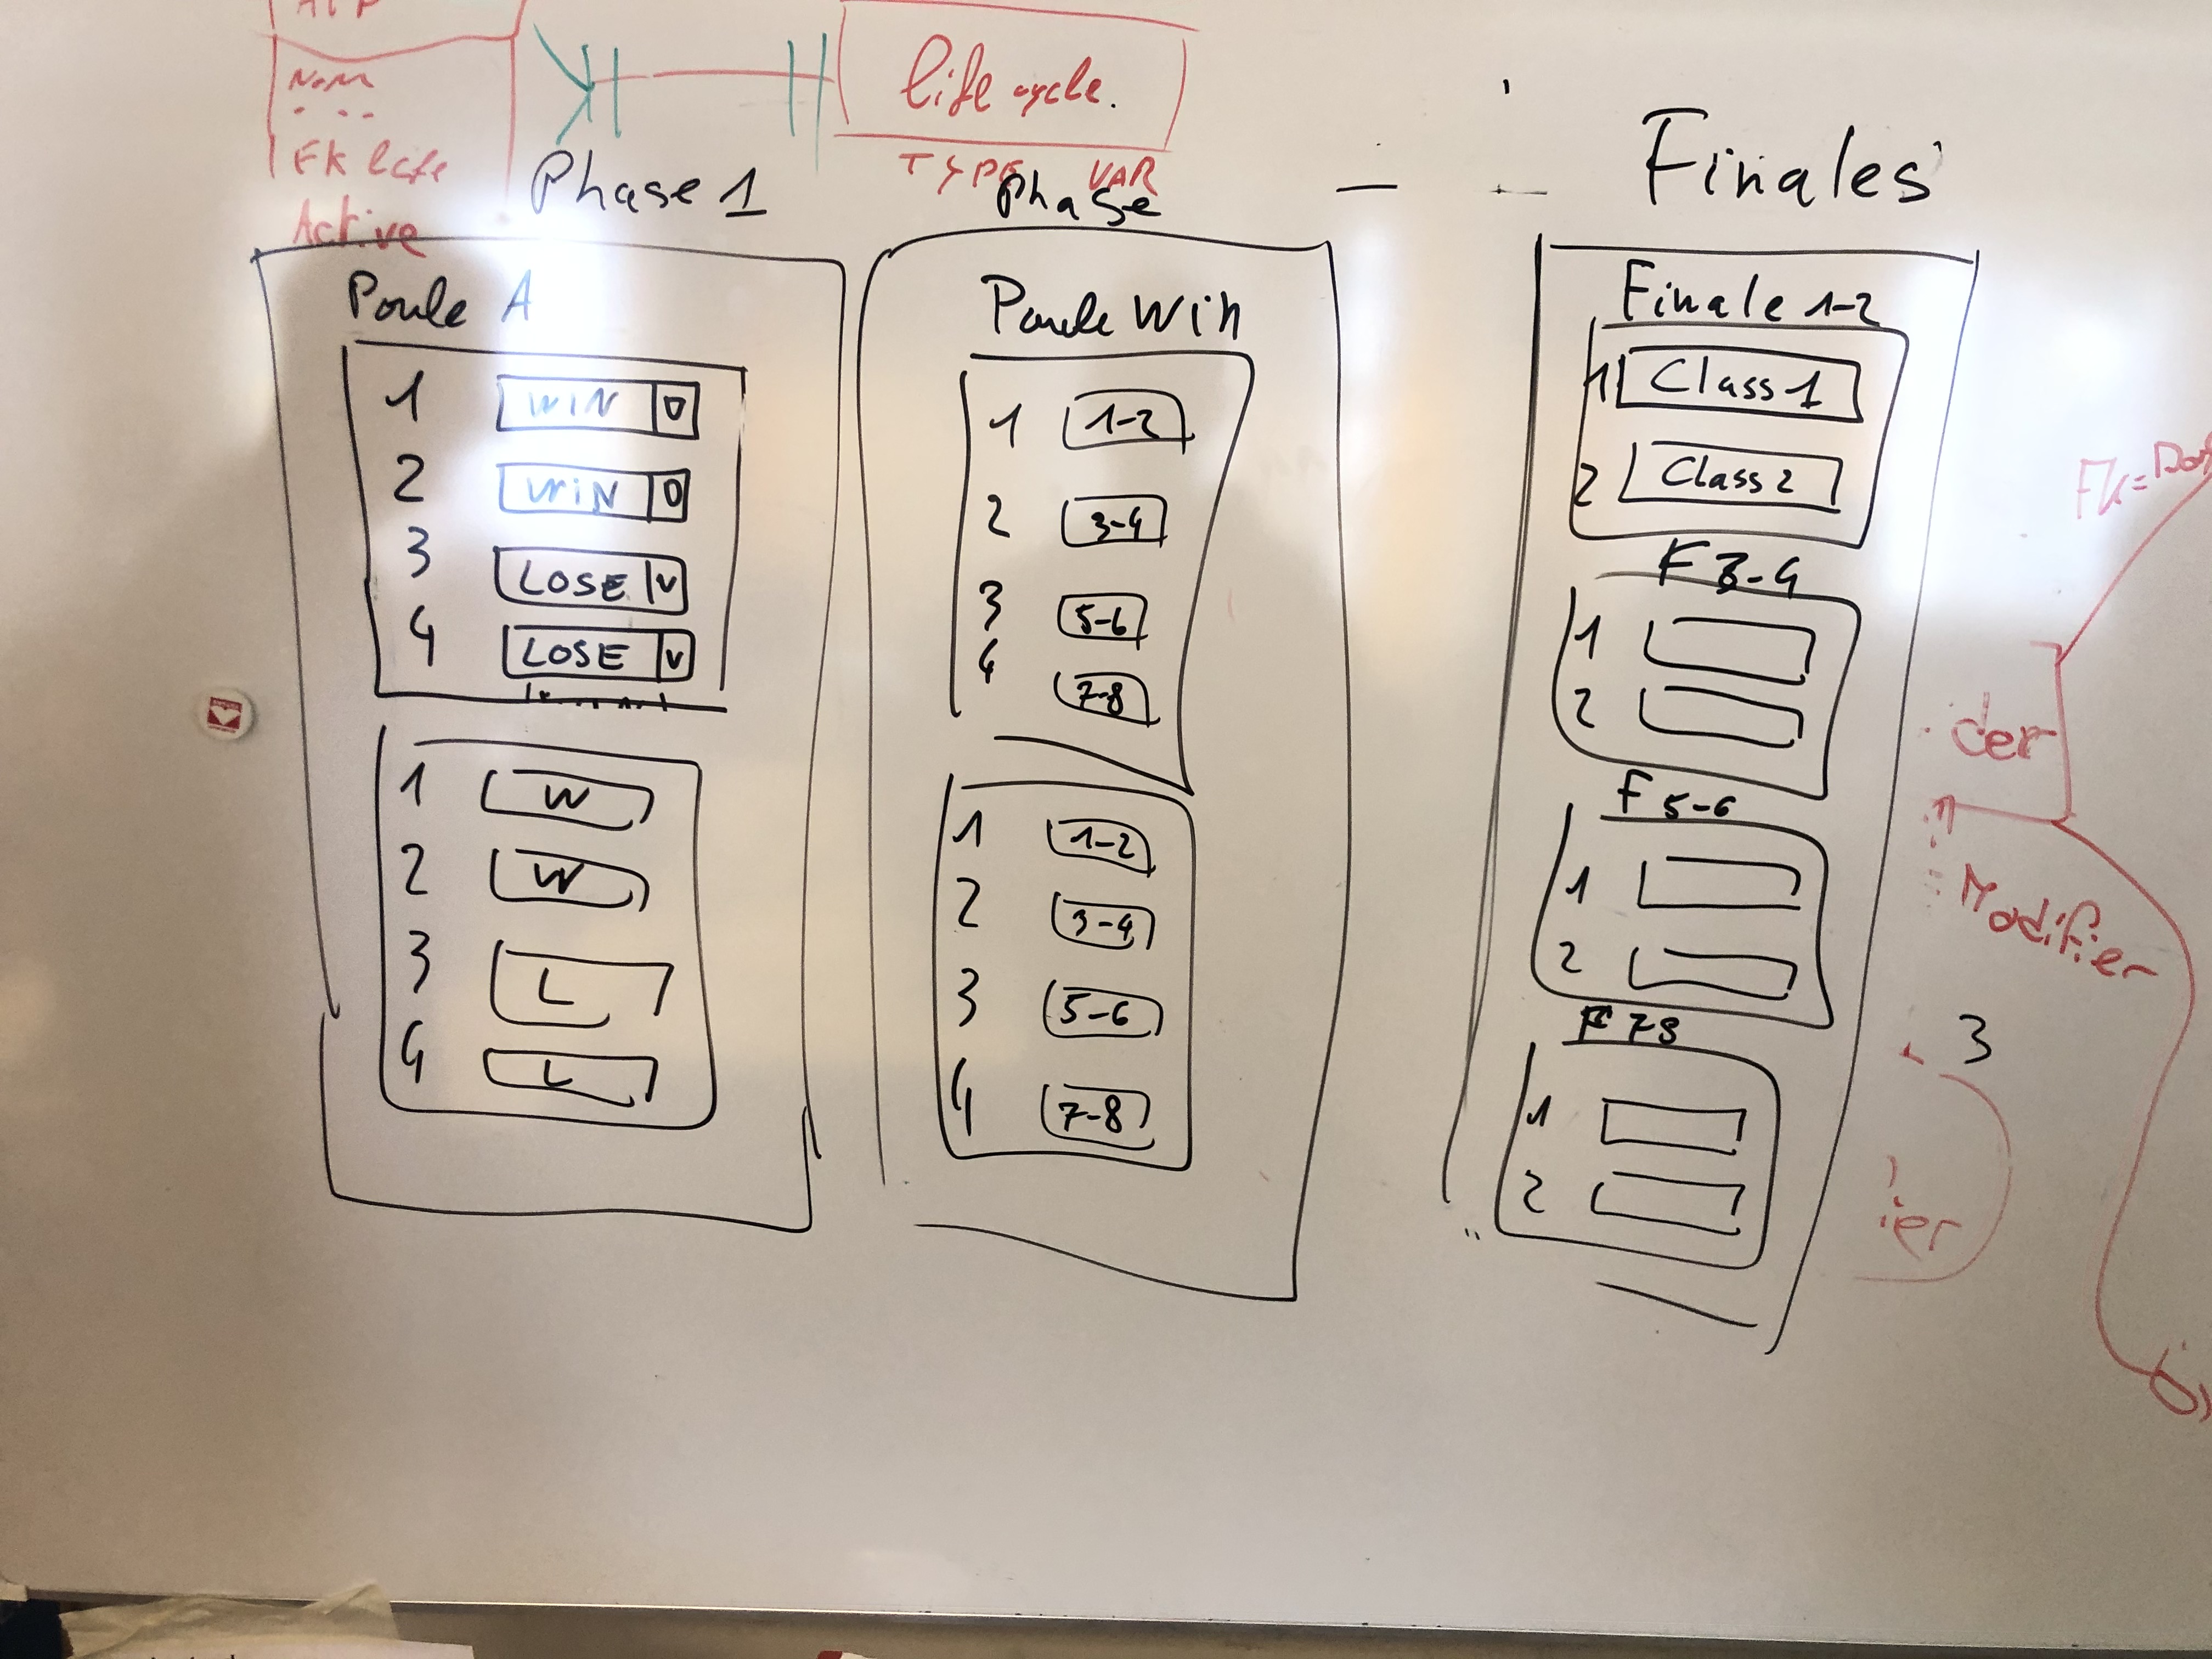 Nom
...
FK life
Active
life cycle.
TYPE VAR
Phase 1
Phase
Finales
Poule A
1 WIN
2 WIN
3 LOSE v
4 LOSE v
1 W
2 W
3 L
4 L
Poule Win
1 1-2
2 3-4
3 5-6
4 7-8
1 1-2
2 3-4
3 5-6
4 7-8
Finale 1-2
1 Class 1
2 Class 2
F 3-4
1
2
F 5-6
1
2
F 7-8
1
2
der
Modifier
3
ier